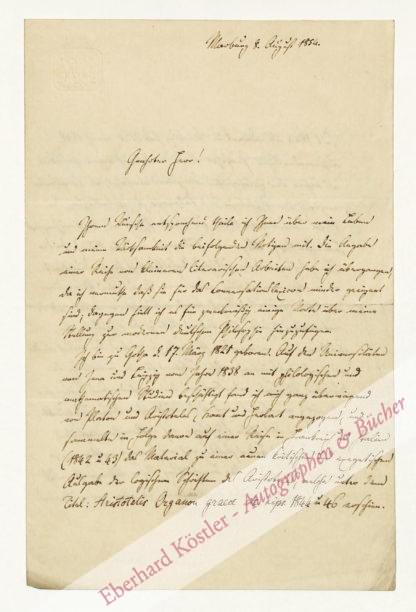 Marburg 8. August 1854.
Geehrter Herr!
Ihrem Wunsche entsprechend theile ich Ihnen über mein Leben
und meine Wirksamkeit die beifolgenden Notizen mit. Die Angabe
einer Reihe von kleineren literarischen Arbeiten habe ich übergangen,
da ich vermuthe daß sie für das Conversationslexicon minder geeignet
sind; dagegen hielt ich es für zweckmäßig einige Worte über meine
Stellung zur modernen deutschen Philosophie hinzuzufügen.
Ich bin zu Gotha d. 17. März 1821 geboren. Auf den Universitäten
von Jena und Leipzig vom Jahre 1838 an mit philologischen und
mathematischen Studien beschäftigt fand ich mich ganz überwiegend
von Platon und Aristoteles, Kant und Herbart angezogen, und
sammelte in Folge davon auf einer Reise in Frankreich und Italien
(1842 u 43) das Material zu einer neuen kritischen und exegetischen
Ausgabe der logischen Schriften des Aristoteles, welche unter dem
Titel: Aristotelis Organon graece 1844 u 46 erschien.
Eberhard Köstler - Autographen & Bücher